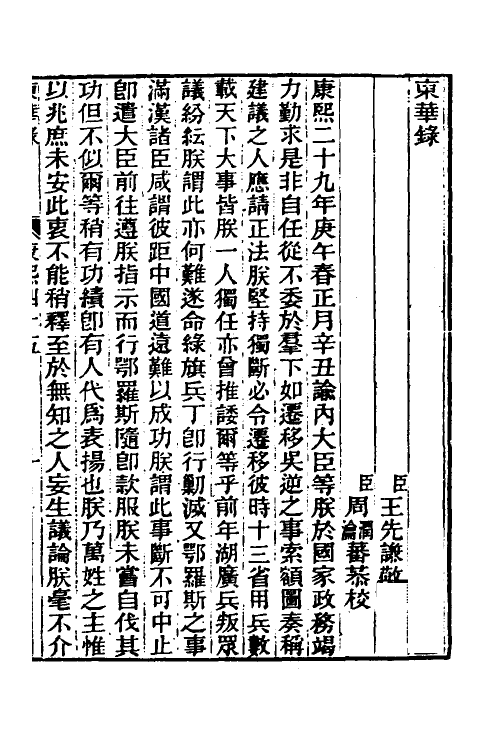 東華錄
臣王先謙敬
臣周潤蕃恭校
康熙二十九年庚午春正月辛丑諭內大臣等朕於國家政務竭
力勤求是非自任從不委於羣下如遷移吳逆之事索額圖奏稱
建議之人應請正法朕堅持獨斷必令遷移彼時十三省用兵數
載天下大事皆朕一人獨任亦曾推諉爾等乎前年湖廣兵叛眾
議紛紜朕謂此亦何難遂命綠旗兵丁卽行勦滅又鄂羅斯之事
滿漢諸臣咸謂彼距中國道遠難以成功朕謂此事斷不可中止
卽遣大臣前往遵朕指示而行鄂羅斯隨卽款服朕未嘗自伐其
功但不似爾等稍有功績卽有人代爲表揚也朕乃萬姓之主惟
以兆庶未安此衷不能稍釋至於無知之人妄生議論朕毫不介